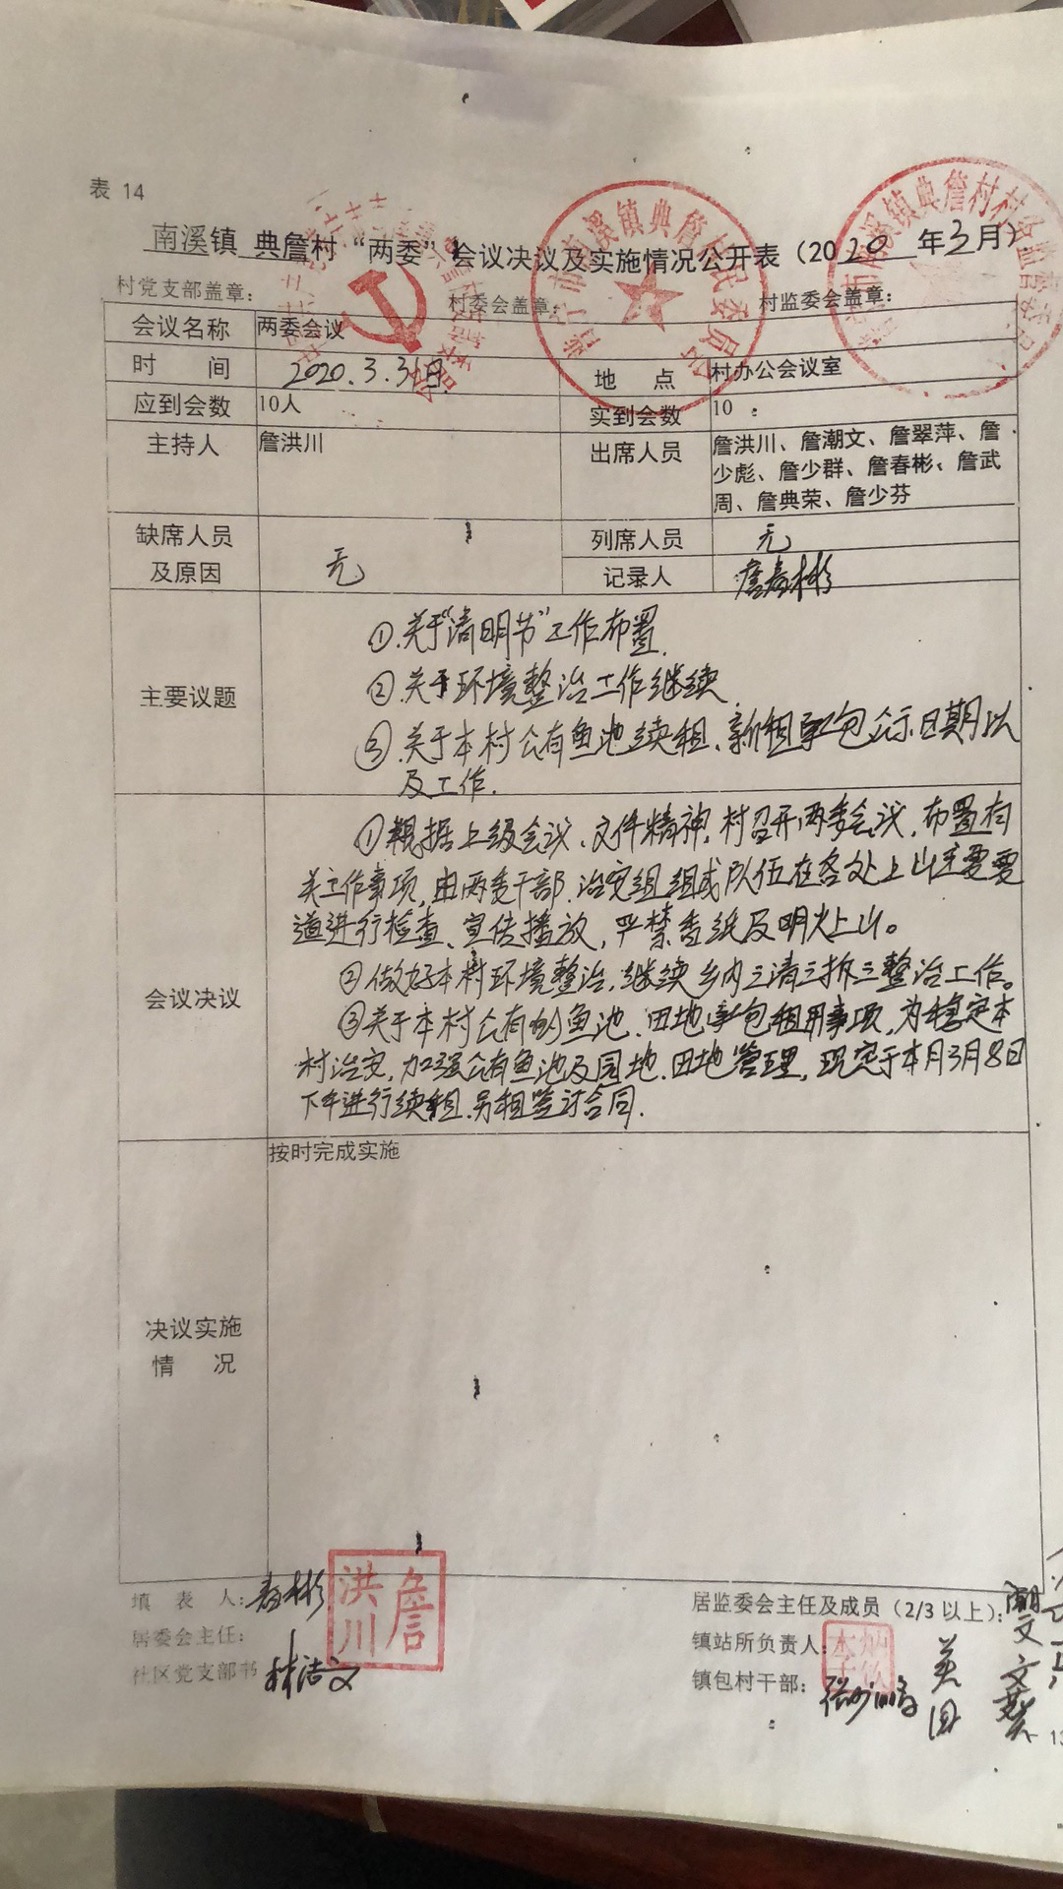 表 14
南溪镇 典詹村“两委”会议决议及实施情况公开表（2020年3月）
村党支部盖章： 村委会盖章： 村监委会盖章：
会议名称 两委会议
时 间 2020.3.3 地 点 村办公会议室
应到会数 10人 实到会数 10
主持人 詹洪川 出席人员 詹洪川、詹潮文、詹翠萍、詹
少彪、詹少群、詹春彬、詹武
周、詹典荣、詹少芬
缺席人员 列席人员 无
及原因 无 记录人 詹春彬
主要议题
①.关于“清明节”工作布置.
②关于环境整治工作继续
③.关于本村公有鱼池续租、新租承包公示日期以
及工作.
会议决议
①根据上级会议、文件精神,村召开两委会议,布置有
关工作事项,由两委干部.治安组组成队伍在各处上山主要要
道进行检查、宣传播放,严禁香纸及明火上山。
②做好本村环境整治,继续乡内三清三拆三整治工作。
③关于本村公有的鱼池.田地承包租用事项,为稳定本
村治安,加强公有鱼池及园地.田地管理,现定于本月3月8日
下午进行续租.另租签订合同.
决议实施
情 况
按时完成实施
填 表 人：春彬
詹洪川
居委会主任：
社区党支部书
居监委会主任及成员（2/3 以上）：潮文
镇站所负责人：
镇包村干部：